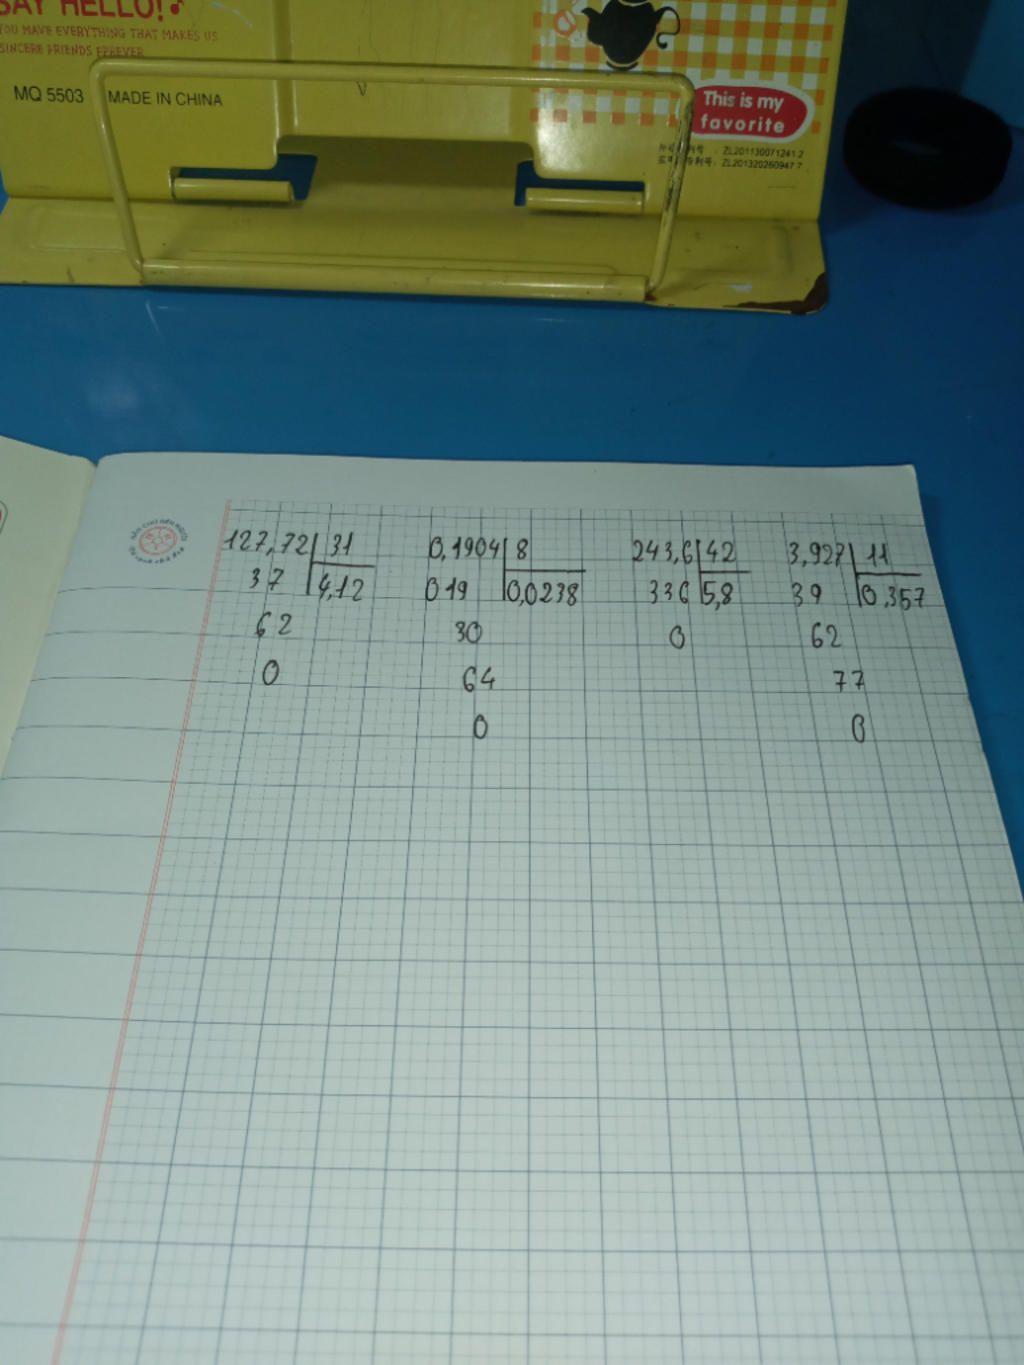 SAY HELLO!
YOU HAVE EVERYTHING THAT MAKES US
SINCERE FRIENDS FPREVER
MQ 5503 MADE IN CHINA
This is my
favorite
ZL201130071241.2
ZL201320260947.7
127,72 31 0,1904 8 243,6 42 3,927 11
37 4,12 019 0,0238 336 5,8 39 0,357
62 30 0 62
0 64 77
0 0